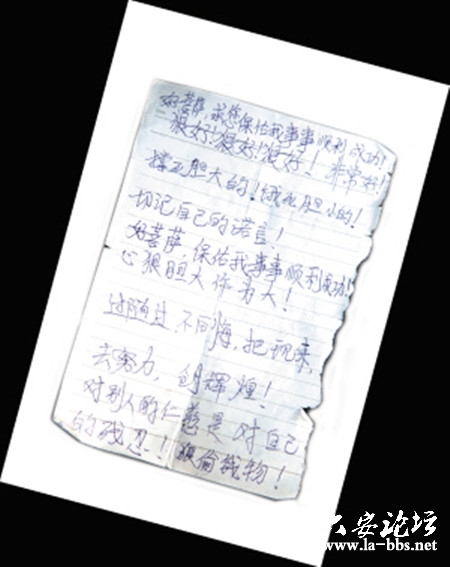 好菩萨,求您保佑我事事顺利成功!
二狠好!狠好!狠好!非常好!
撑死胆大的!饿死胆小的!
切记自己的诺言!
好菩萨,保佑我事事顺利成功!
心狠胆大作为大!
过随过不回悔,把现来,
去努力,创辉煌!
对别人的仁慈是对自己
的残忍!狠偷钱物!
六安论坛
www.la-bbs.net